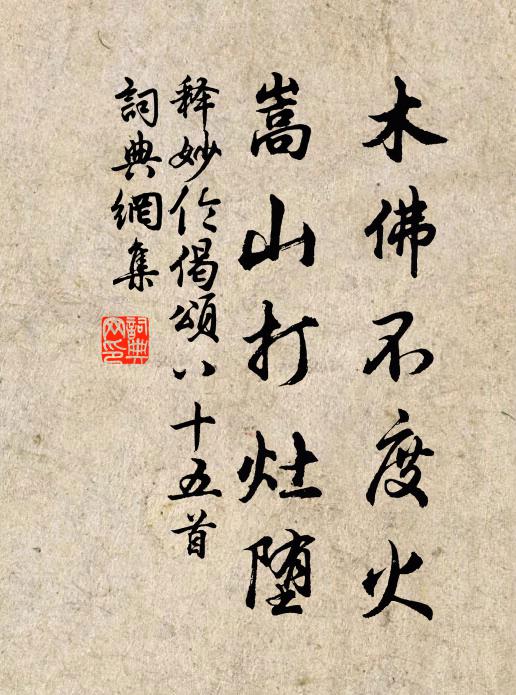 木佛不度火
嵩山打灶堕
释妙伦偈頌八十五首
詞典網集
詞典
网印